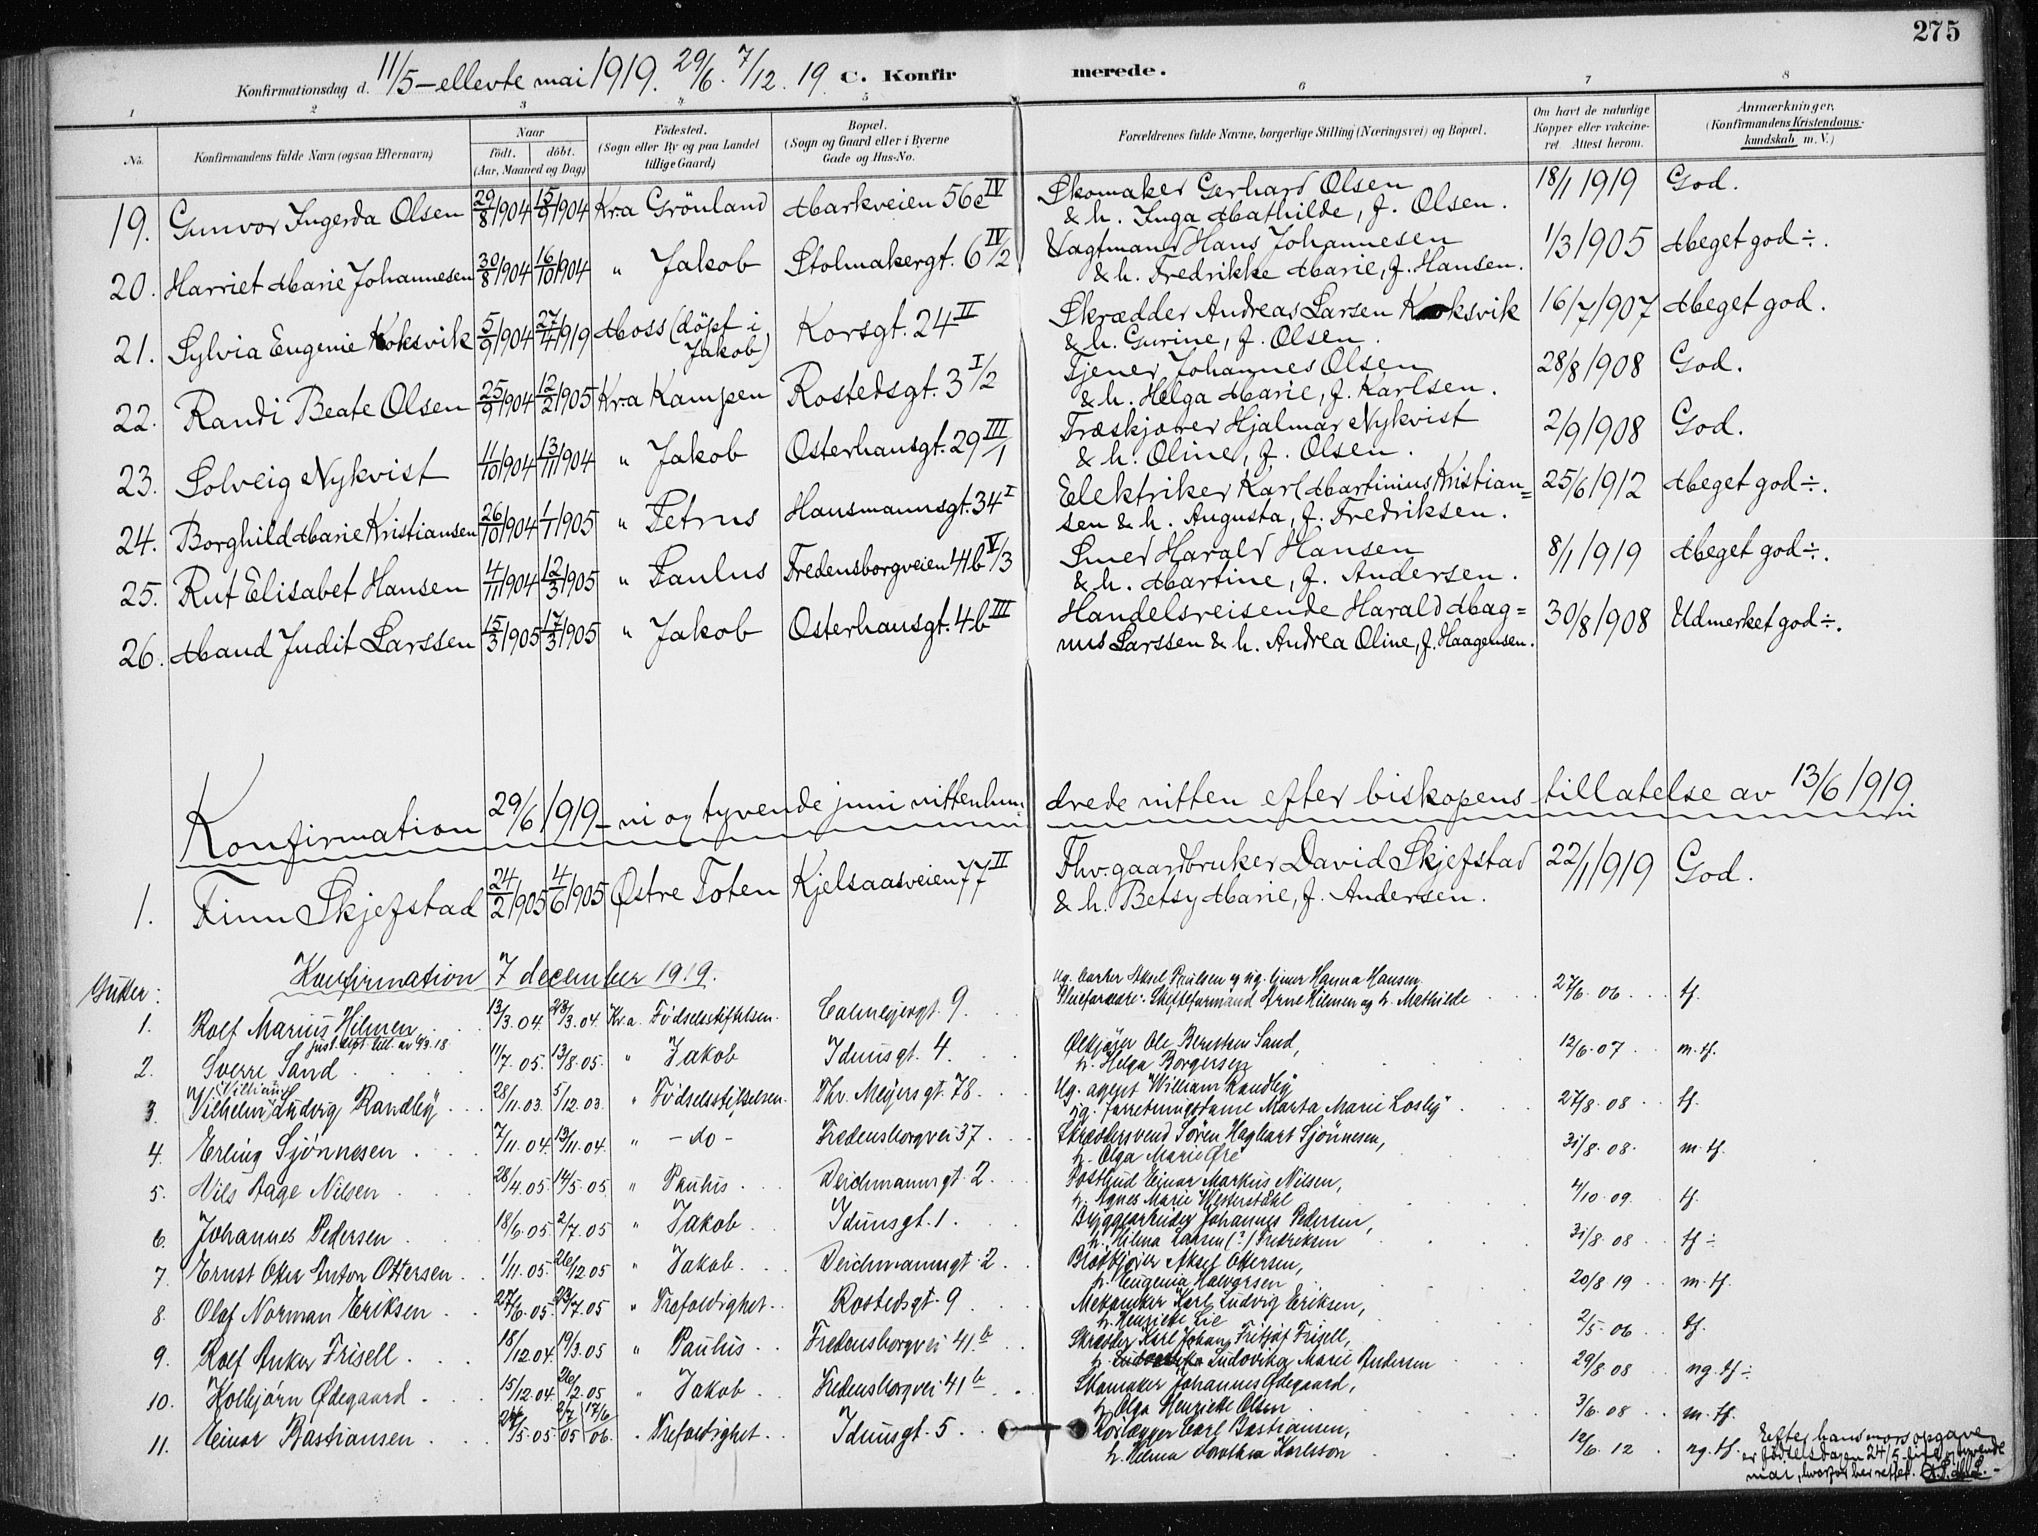 275
Konfirmationsdag d. 11/5 – ellevte mai 1919. 29/6. 7/12. 19. C. Konfirmerede.
1 2 3 4 5 6 7 8
No. Konfirmandens fulde Navn (ogsaa Efternavn) Naar født. døbt. (Aar, Maaned og Dag) Fødested. (Sogn eller By og paa Landet tillige Gaard) Bopæl. (Sogn og Gaard eller i Byerne Gade og Hus-No. Forældrenes fulde Navne, borgerlige Stilling (Næringsvei) og Bopæl. Om havt de naturlige Kopper eller vaccineret. Attest herom. Anmærkninger. (Konfirmandens Kristendomskundskab m. V.)
19. Gunvor Ingerda Olsen 29/8 1904 15/9 1904 Kra Grönland Markveien 56c IV Skomaker Gerhard Olsen 18/1 1919 God.
& h. Inga Mathilde, f. Olsen.
20. Harriet Marie Johannesen 30/8 1904 16/10 1904 " Jakob Stolmakergt. 6 IV/2 Vagtmand Hans Johannesen 1/3 1905 Meget god ÷.
& h. Fredrikke Marie, f. Hansen.
21. Sylvia Eugenie Koksvik 5/9 1904 27/4 1919 Moss (döpt i Jakob) Korsgt. 24 II Skrædder Andreas Larsen Koksvik 16/7 1907 Meget god.
& h. Gurine, f. Olsen.
22. Randi Beate Olsen 25/9 1904 12/2 1905 Kra Kampen Rostedsgt. 3 I/2 Tjener Johannes Olsen 28/8 1908 God.
& h. Helga Marie, f. Karlsen.
23. Solveig Nykvist 11/10 1904 13/11 1904 " Jakob Osterhausgt. 29 III/1 Træskjærer Hjalmar Nykvist 2/9 1908 God.
& h. Oline, f. Olsen.
24. Borghild Marie Kristiansen 26/10 1904 1/1 1905 " Petrus Hausmannsgt. 34 I Elektriker Karl Martinius Kristian= 25/6 1912 Meget god ÷.
sen & h. Augusta, f. Fredriksen.
25. Rut Elisabet Hansen 4/11 1904 12/3 1905 " Paulus Fredensborgveien 41b V/3 Smed Harald Hansen 8/1 1919 Meget god ÷.
& h. Martine, f. Andersen.
26. Maud Judit Larssen 15/3 1905 17/3 1905 " Jakob Osterhausgt. 4b III Handelsreisende Harald Mag= 30/8 1908 Udmerket god ÷.
nus Larssen & h. Andrea Oline, f. Haagensen.
Konfirmation 29/6 1919 – ni og tyvende juni nittenhundrede nitten efter biskopens tillatelse av 13/6 1919.
1. Finn Skjefstad 24/2 1905 4/6 1905 Østre Toten Kjelsaasveien 77 II Fhv. gaardbruker David Skjefstad 22/1 1919 God.
& h. Betsy Marie, f. Andersen.
Konfirmation 7 december 1919.
Gutter:
1. Rolf Marius Hilmen 13/3.04. 28/3.04. Kra. Födselsstiftelsen. Calmeyergt. 9. Ug. Aksel Paulsen og ug. Hanna Hansen 27/6.06. tf.
just. dept. till. av 9/3.18 Pleieforældre: Arne Hilmen og h. Mathilde
2. Sverre Sand 11/7.05. 13/8.05. " Jakob Idunsgt. 4. Ølkjører Ole Berntsen Sand, 12/6.07 m. tf.
h. Helga Borgersen
3. Vilhelm (William) Ludvig Randby 28/11.03. 5/12.03. " Fødselsstiftelsen. Thv. Meyersgt. 78. Ug. agent William Randby 27/8.08 tf.
ug. forretningsdame Marta Marie Losby
4. Erling Sjønnesen 7/11.04. 13/11.04. " – do – Fredensborgvei 37. Skræddersvend Søren Hagbart Sjönnesen, 31/8.08. m. tf.
h. Olga Marie Øre
5. Nils Aage Nilsen 28/4.05. 14/5.05 " Paulus. Deichmannsgt 2. Postbud Einar Markus Nilsen, 4/10.09. tf.
h. Agnes Marie Westerståhl
6. Johannes Pedersen 18/6.05 2/7.05 " Jakob. Idunsgt. 1. Byggearbeider Johannes Pedersen, 31/8.08 tf ÷
h. Hilma Larsen (?) Fredriksen
7. Ernst Otter Anton Ottersen 1/11.05. 26/12 05 " Jakob. Deichmannsgt. 2. Brødkjører Aksel Ottersen, 20/8 19 m. tf.
h. Eugenia Halvorsen
8. Olaf Norman Eriksen 27/6.05. 23/7.05 " Trefoldighet. Rostedsgt. 9 Mekaniker Karl Ludvig Eriksen, 2/5.06 tf.
h. Henriette Lie
9. Rolf Anker Frisell 18/12 04 19/3.05 " Paulus Fredensborgvei 41 b Skrædder Karl Johan Fritjof Frisell, 29/8 08 ng. tf ÷
h. Ludovika Marie Andersen
10. Kolbjørn Ødegaard 15/12.04. 26/2.05 " Jakob Fredensborgvei 41 b Skomaker Johannes Ødegaard, 3/6.08 m. tf.
h. Olga Henriette Olsen
11. Einar Bastiansen 24/5.05 2/7 05 17/6 06. " Trefoldighet. Idunsgt. 5. Rørlægger Carl Bastiansen, 12/6.12 ng. tf.
h. Hilma Dorothea Karlsson
Efter hans mors opgave
er fødselsdagen 24/5 fire og tyvende
mai, hvorfor her rettet.